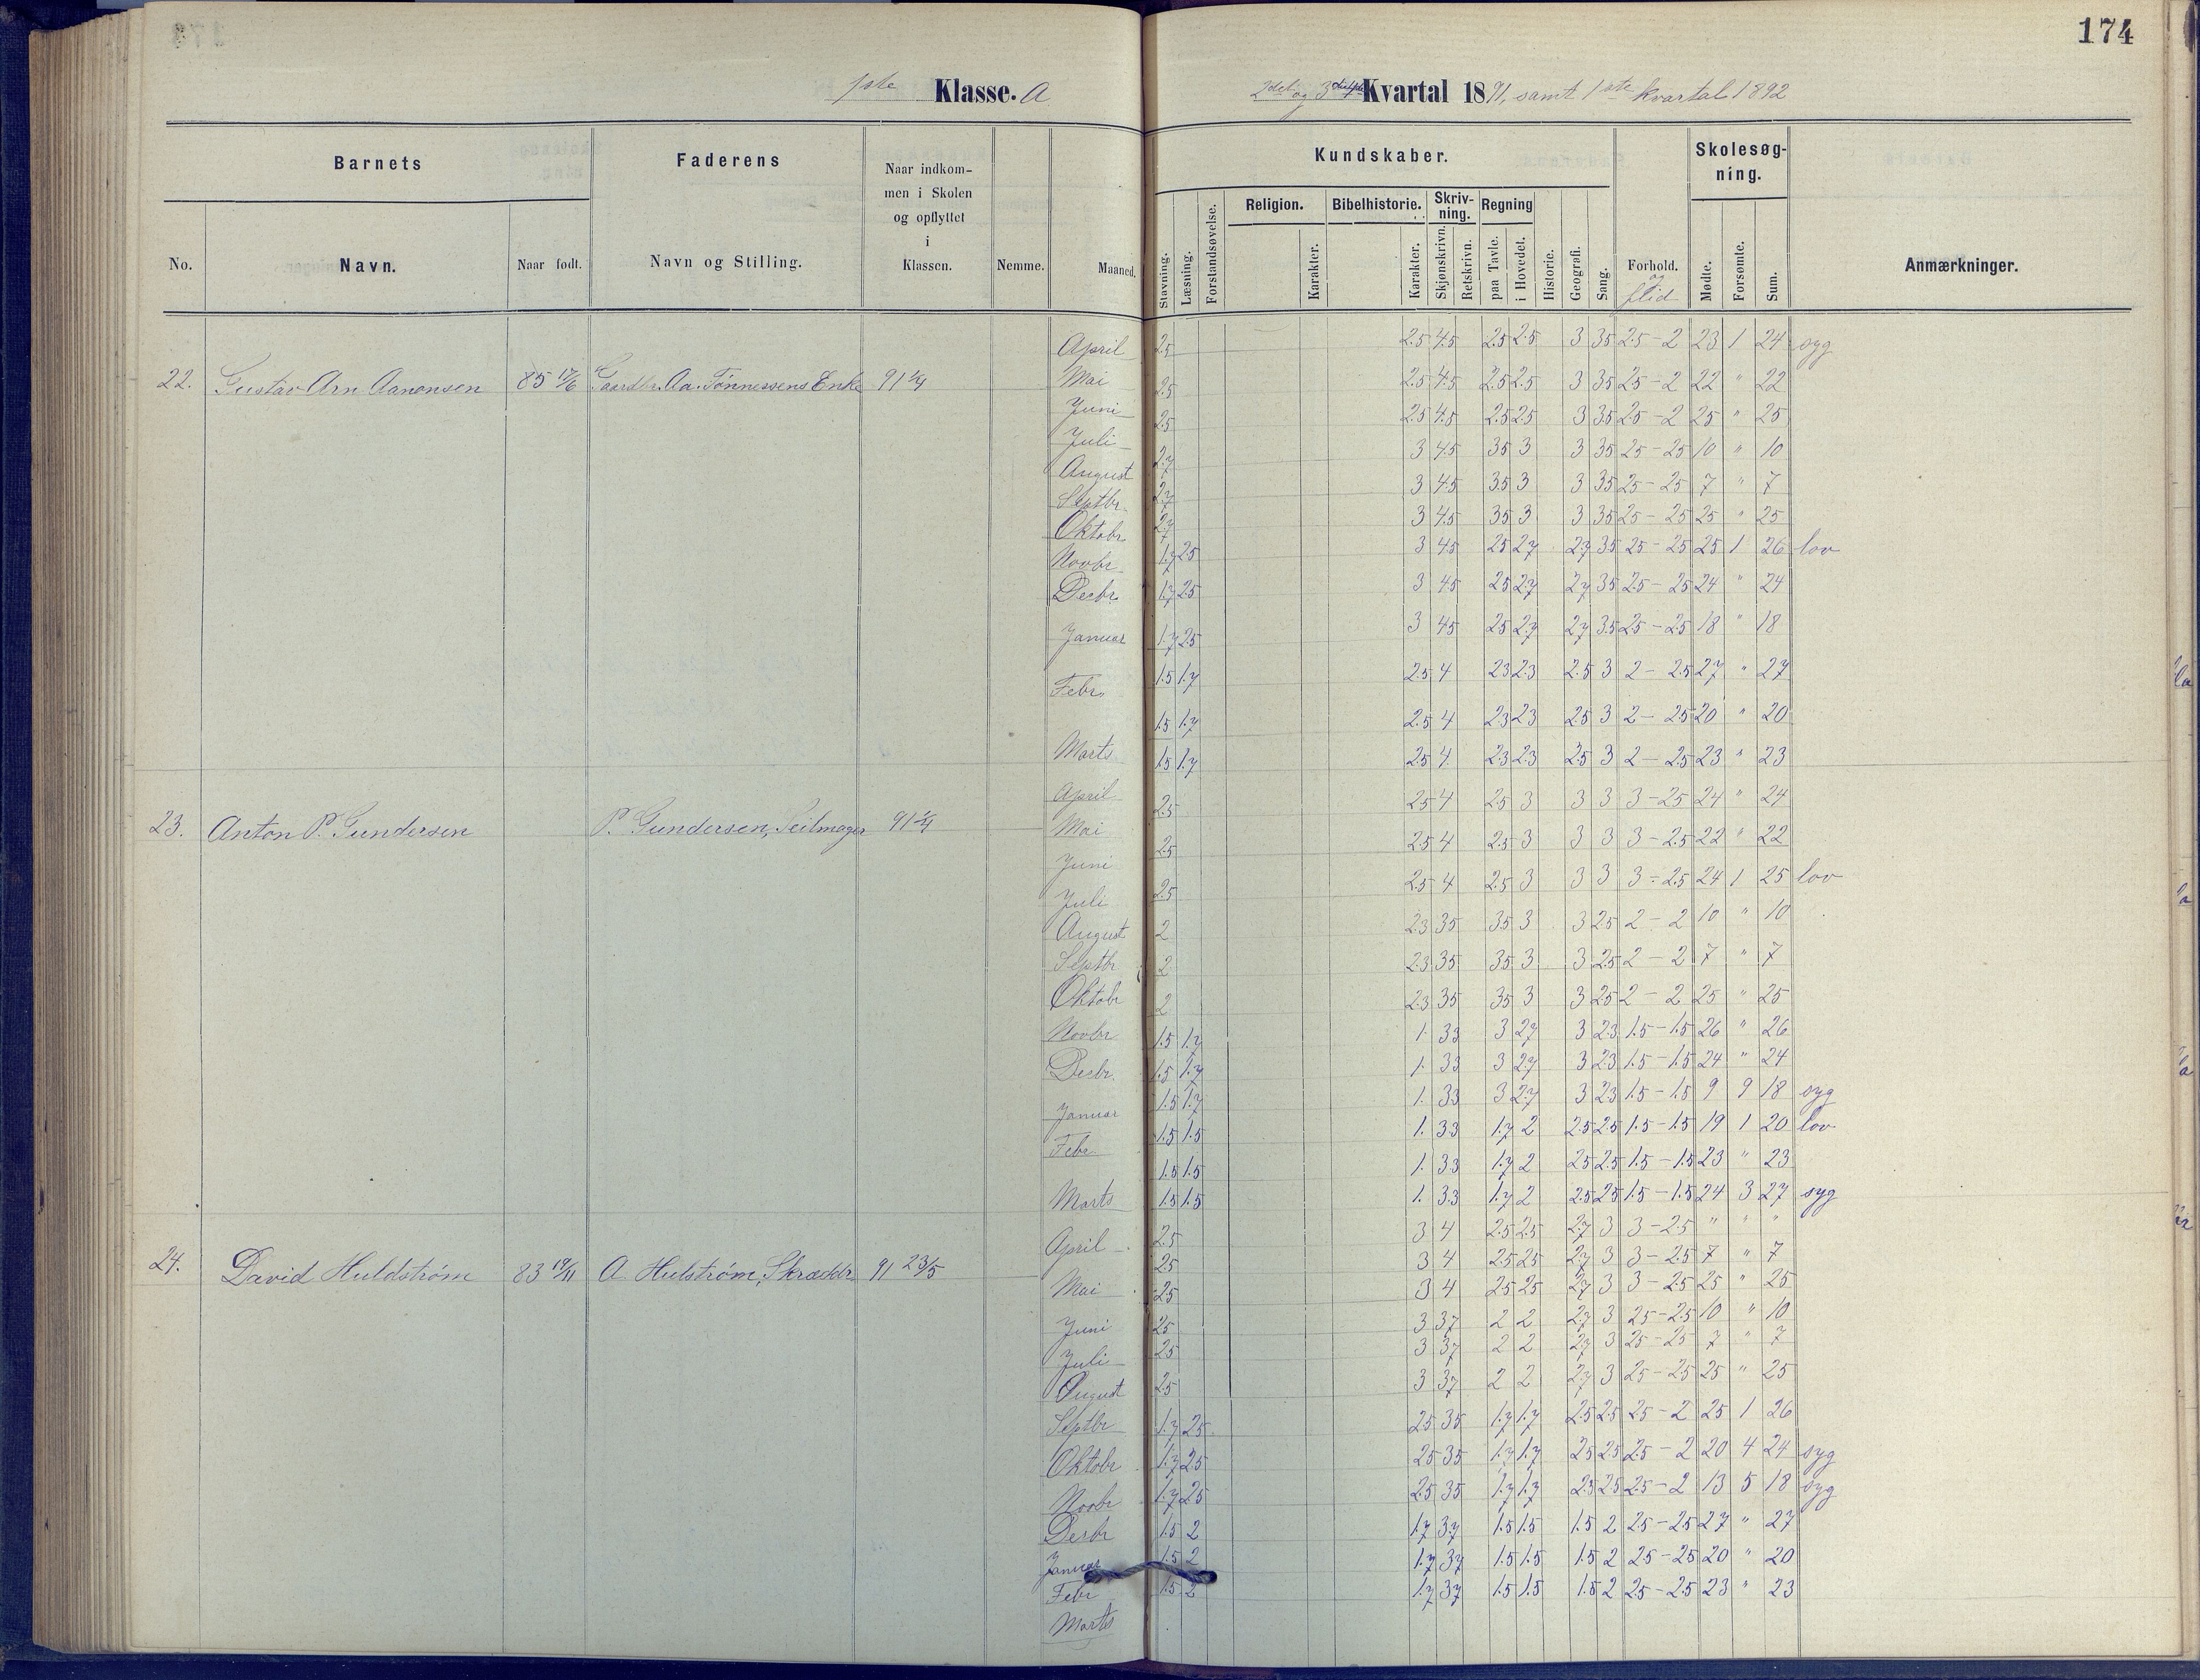 174
1ste Klasse. A
2det og 3die Kvartal 1891, samt 1ste kvartal 1892
Barnets
Faderens
Naar indkom-
men i Skolen
og opflyttet
i
Klassen.
Kundskaber.
Skolesøg-
ning.
Religion. Bibelhistorie. Skriv-
ning. Regning
No. Navn. Naar født. Navn og Stilling. Nemme. Maaned. Stavning. Læsning. Forstandsøvelse. Karakter. Karakter. Skjønskrivn. Retskrivn. paa Tavle. i Hovedet. Historie. Geografi. Sang. Forhold. og flid Mødte. Forsømte. Sum. Anmærkninger.
April 2.5 2.5 4.5 2.5 2.5 3 3.5 2.5-2 23 1 24 syg
22. Gustav Arn Aanonsen 85 17/6 Gaardbr. Aa. Tønnessens Enke 91 1/4 Mai 2.5 2.5 4.5 2.5 2.5 3 3.5 2.5-2 22 " 22
Juni 2.5 2.5 4.5 2.5 2.5 3 3.5 2.5-2 25 " 25
Juli 2.7 3 4.5 3.5 3 3 3.5 2.5-2.5 10 " 10
August 2.7 3 4.5 3.5 3 3 3.5 2.5-2.5 7 " 7
Septbr. 2.7 3 4.5 3.5 3 3 3.5 2.5-2.5 25 " 25
Oktobr. 1.7 2.5 3 4.5 2.5 2.7 2.7 3.5 2.5-2.5 25 1 26 lov
Novbr. 1.7 2.5 3 4.5 2.5 2.7 2.7 3.5 2.5-2.5 24 " 24
Decbr. 1.7 2.5 3 4.5 2.5 2.7 2.7 3.5 2.5-2.5 18 " 18
Januar 1.5 1.7 2.5 4 2.3 2.3 2.5 3 2-2.5 27 " 27
Febr. 1.5 1.7 2.5 4 2.3 2.3 2.5 3 2-2.5 20 " 20
Marts 1.5 1.7 2.5 4 2.3 2.3 2.5 3 2-2.5 23 " 23
April 2.5 2.5 4 2.5 3 3 3 3-2.5 24 " 24
23. Anton P. Gundersen P. Gundersen, Seilmager 91 1/4 Mai 2.5 2.5 4 2.5 3 3 3 3-2.5 22 " 22
Juni 2.5 2.5 4 2.5 3 3 3 3-2.5 24 1 25 lov
Juli 2 2.3 3.5 3.5 3 3 2.5 2-2 10 " 10
August 2 2.3 3.5 3.5 3 3 2.5 2-2 7 " 7
Septbr 2 2.3 3.5 3.5 3 3 2.5 2-2 25 " 25
Oktobr 1.5 1.7 1. 3.3 3 2.7 3 2.3 1.5-1.5 26 " 26
Novbr 1.5 1.7 1. 3.3 3 2.7 3 2.3 1.5-1.5 24 " 24
Decbr. 1.5 1.7 1. 3.3 3 2.7 3 2.3 1.5-1.5 9 9 18 syg
Januar 1.5 1.5 1. 3.3 1.7 2 2.5 2.5 1.5-1.5 19 1 20 lov
Febr 1.5 1.5 1. 3.3 1.7 2 2.5 2.5 1.5-1.5 23 " 23
Marts 1.5 1.5 1. 3.3 1.7 2 2.5 2.5 1.5-1.5 24 3 27 syg
April 2.5 3 4 2.5 2.5 2.7 3 3-2.5 " " "
24. David Huldstrøm 83 19/11 A Hulstrøm, Skrædder 91 23/5 Mai 2.5 3 4 2.5 2.5 2.7 3 3-2.5 7 " 7
Juni 2.5 3 4 2.5 2.5 2.7 3 3-2.5 25 " 25
Juli 2.5 3 3.7 2 2 2.7 3 2.5-2.5 10 " 10
August 2.5 3 3.7 2 2 2.7 3 2.5-2.5 7 " 7
Septbr 2.5 3 3.7 2 2 2.7 3 2.5-2.5 25 " 25
Oktobr 1.7 2.5 2.5 3.5 1.7 1.7 2.5 2.5 2.5-2 25 1 26
Novbr 1.7 2.5 2.5 3.5 1.7 1.7 2.5 2.5 2.5-2 20 4 24 syg
Decbr 1.7 2.5 2.5 3.5 1.7 1.7 2.5 2.5 2.5-2 13 5 18 syg
Januar 1.5 2 1.7 3.7 1.5 1.5 1.5 2 2.5-2.5 27 " 27
Febr 1.5 2 1.7 3.7 1.5 1.5 1.5 2 2.5-2.5 20 " 20
Marts 1.5 2 1.7 3.7 1.5 1.5 1.5 2 2.5-2.5 23 " 23